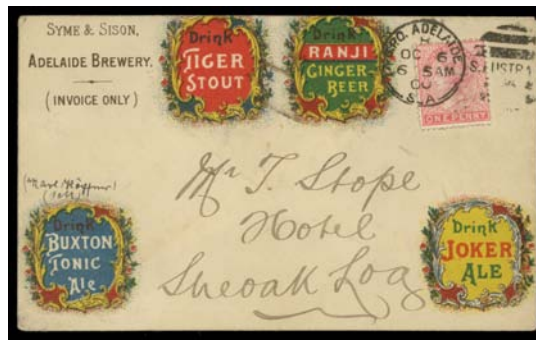 SYME & SISON,
ADELAIDE BREWERY.
(INVOICE ONLY)
Drink
TIGER
STOUT
Drink
RANJI
GINGER-
BEER
G.P.O. ADELAIDE
OC 6
6 5AM
S.A
ONE PENNY
Mr T. Stope
Hotel
Sheoak Log
Drink
BUXTON
TONIC
Ale
Drink
JOKER
ALE